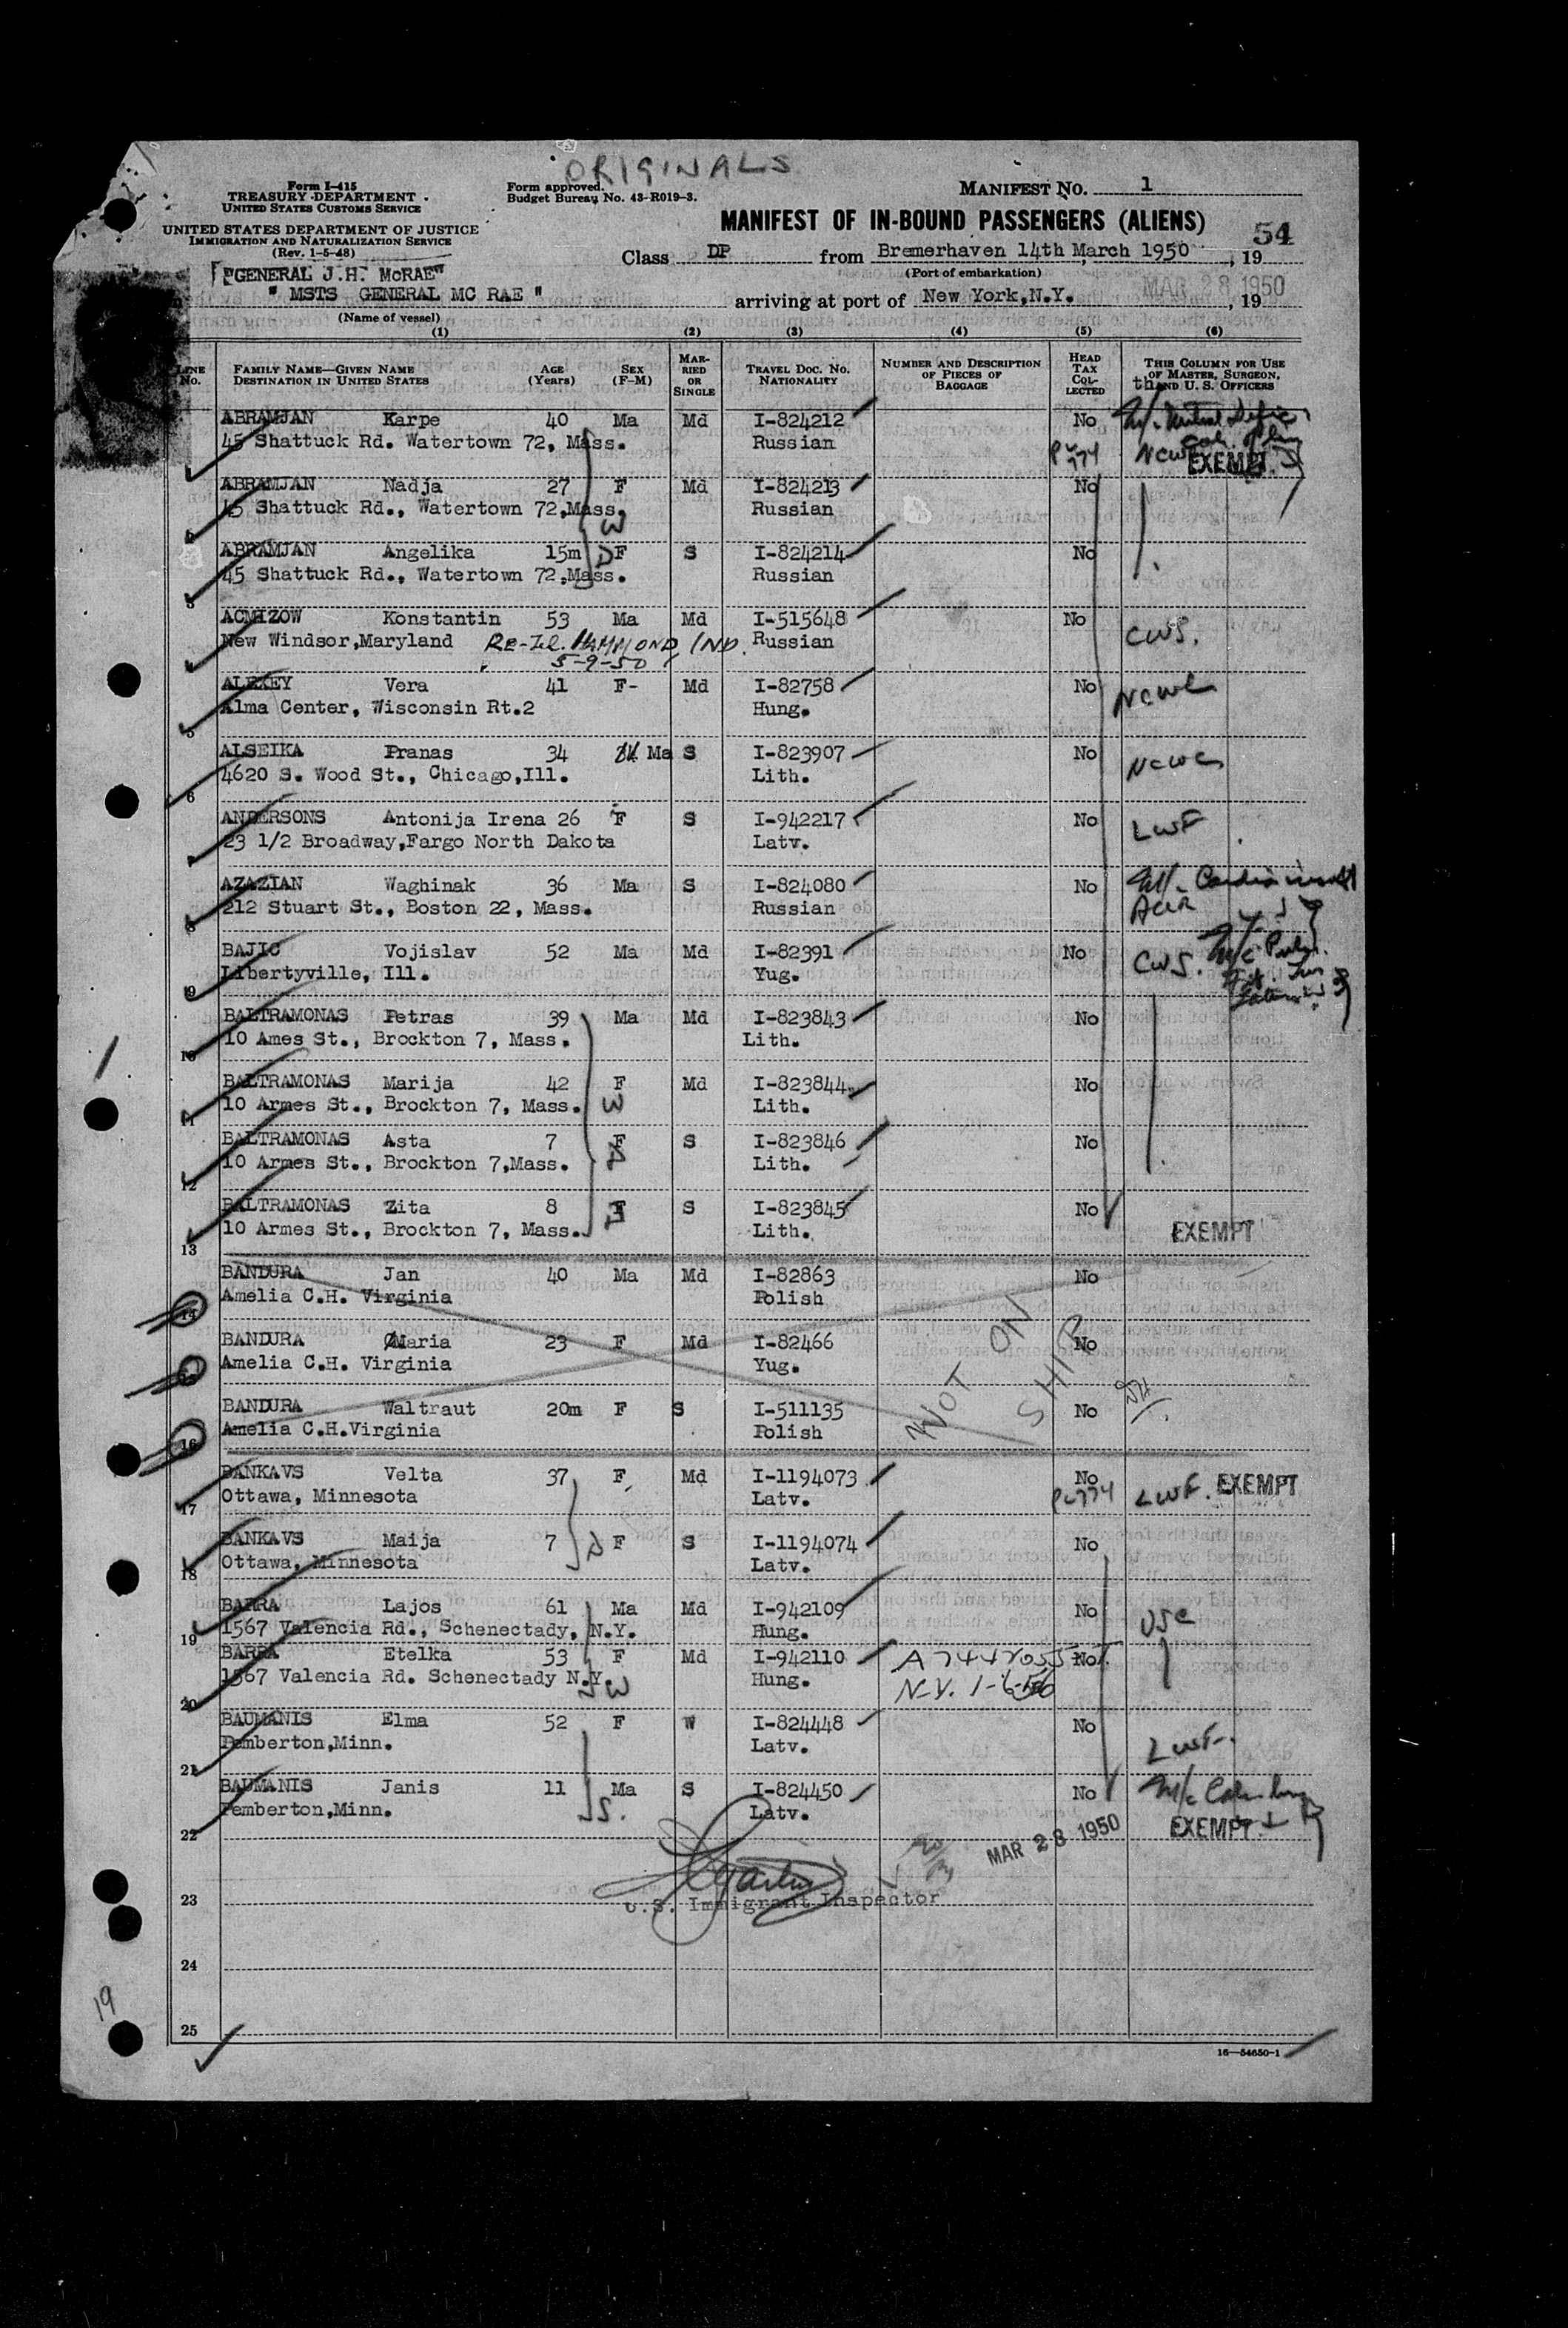 ORIGINALS
Form I-415
TREASURY DEPARTMENT
UNITED STATES CUSTOMS SERVICE
UNITED STATES DEPARTMENT OF JUSTICE
IMMIGRATION AND NATURALIZATION SERVICE
(Rev. 1-5-48)
Form approved.
Budget Bureau No. 43-R019-3.
MANIFEST NO. 1
MANIFEST OF IN-BOUND PASSENGERS (ALIENS)
54
Class DP from Bremerhaven 14th March 1950, 19
(Port of embarkation)
"GENERAL J.H. McRAE"
" MSTS GENERAL MC RAE "
(Name of vessel)
arriving at port of New York,N.Y. MAR 28 1950, 19
(1) (2) (3) (4) (5) (6)
LINE NO.
FAMILY NAME—GIVEN NAME
DESTINATION IN UNITED STATES
AGE (Years)
SEX (F-M)
MARRIED OR SINGLE
TRAVEL DOC. NO.
NATIONALITY
NUMBER AND DESCRIPTION OF PIECES OF BAGGAGE
HEAD TAX COLLECTED
THIS COLUMN FOR USE OF MASTER, SURGEON, AND U. S. OFFICERS
ABRAMJAN Karpe 40 Ma Md I-824212 No
45 Shattuck Rd. Watertown 72, Mass. Russian NCWC EXEMPT
ABRAMJAN Nadja 27 F Md I-824213 No
45 Shattuck Rd., Watertown 72,Mass. Russian
W
ABRAMJAN Angelika 15m F S I-824214 No
D
45 Shattuck Rd., Watertown 72,Mass. Russian
3
ACMIZOW Konstantin 53 Ma Md I-515648 No
New Windsor,Maryland RE-Tel. HAMMOND, IND. Russian CWS.
5-9-50
ALEXEY Vera 41 F- Md I-82758 No NCWC
Alma Center, Wisconsin Rt.2 Hung.
5
ALSEIKA Pranas 34 Ma S I-823907 No
4620 S. Wood St., Chicago,Ill. Lith. NCWC
6
ANDERSONS Antonija Irena 26 F S I-942217 No
23 1/2 Broadway,Fargo North Dakota Latv. LWF
AZAZIAN Waghinak 36 Ma S I-824080 No
212 Stuart St., Boston 22, Mass. Russian
8
BAJIC Vojislav 52 Ma Md I-82391 No
Libertyville, Ill. Yug. CWS.
9
BALTRAMONAS Petras 39 Ma Md I-823843 No
10 Ames St., Brockton 7, Mass. Lith.
10
BALTRAMONAS Marija 42 F Md I-823844 No
10 Armes St., Brockton 7, Mass. W Lith.
11
BALTRAMONAS Asta 7 F S I-823846 No
10 Armes St., Brockton 7,Mass. D Lith.
12
BALTRAMONAS Zita 8 F S I-823845 No
10 Armes St., Brockton 7, Mass. D Lith. EXEMPT
13
BANDURA Jan 40 Ma Md I-82863 No
Amelia C.H. Virginia Polish
14
BANDURA Maria 23 F Md I-82466 No
Amelia C.H. Virginia Yug.
15
NOT ON SHIP
BANDURA Waltraut 20m F S I-511135 No
Amelia C.H.Virginia Polish
16
BANKAVS Velta 37 F Md I-1194073 No
Ottawa, Minnesota Latv. LWF. EXEMPT
17
BANKAVS Maija 7 F S I-1194074 No
D
Ottawa, Minnesota Latv.
18
BARRA Lajos 61 Ma Md I-942109 No
1567 Valencia Rd., Schenectady, N.Y. Hung. USC
19
BARRA Etelka 53 F Md I-942110 No
1567 Valencia Rd. Schenectady N.Y. W Hung. N.Y. 1-6-56
20
BAUMANIS Elma 52 F W I-824448 No
Pemberton,Minn. Latv. LWF.
21
BAUMANIS Janis 11 Ma S I-824450 No
Pemberton,Minn. S. Latv. EXEMPT
22
MAR 28 1950
U.S. Immigrant Inspector
23
24
25
19
16—54650-1